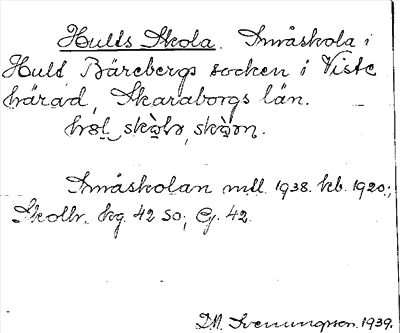 Hulls Skola. Småskola i
Hull Bärebergs socken i Viste
härad, Skaraborgs län.
Småskolan nedl. 1938. kb. 1920;
Skolbr. kg. 42 SO; G. 42.
D.M. Svenungsson. 1939.